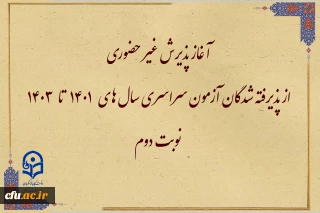 آغاز پذیرش غیر حضوری
از پذیرفته شدگان آزمون سراسری سال های ۱۴۰۱ تا ۱۴۰۳
نوبت دوم
cfu.ac.ir